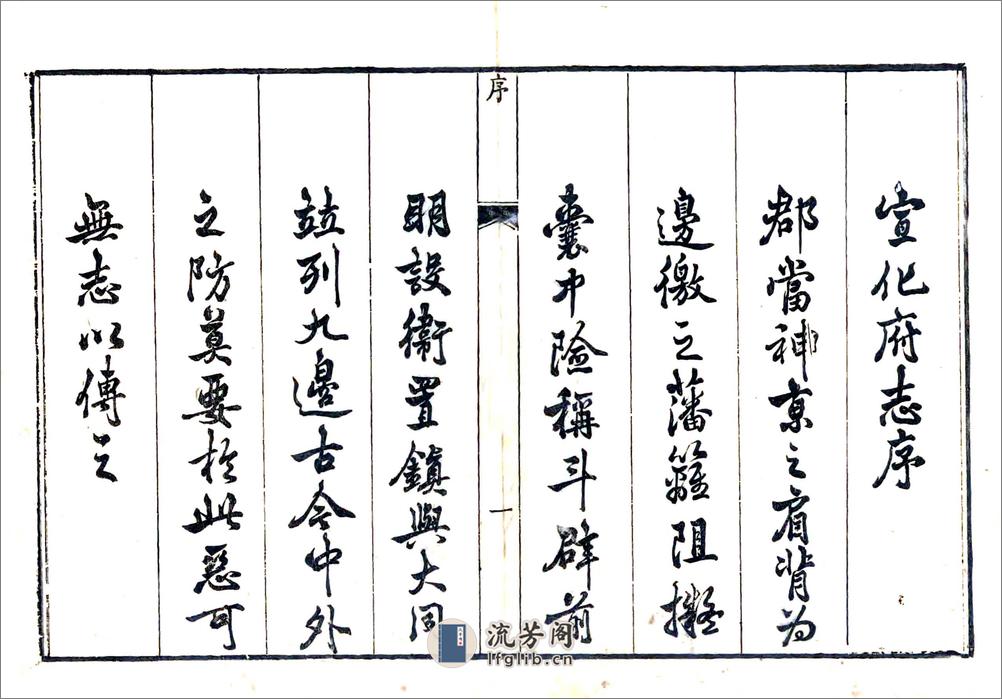 宣化府志序
郡當神京之肩背為
邊徼之藩籬阻擬
囊中險稱斗辟前
序
一
明設衛置鎮與大同
竝列九邊古今中外
之防莫要於此惡可
無志以傳之
流芳阁
lfglib.cn